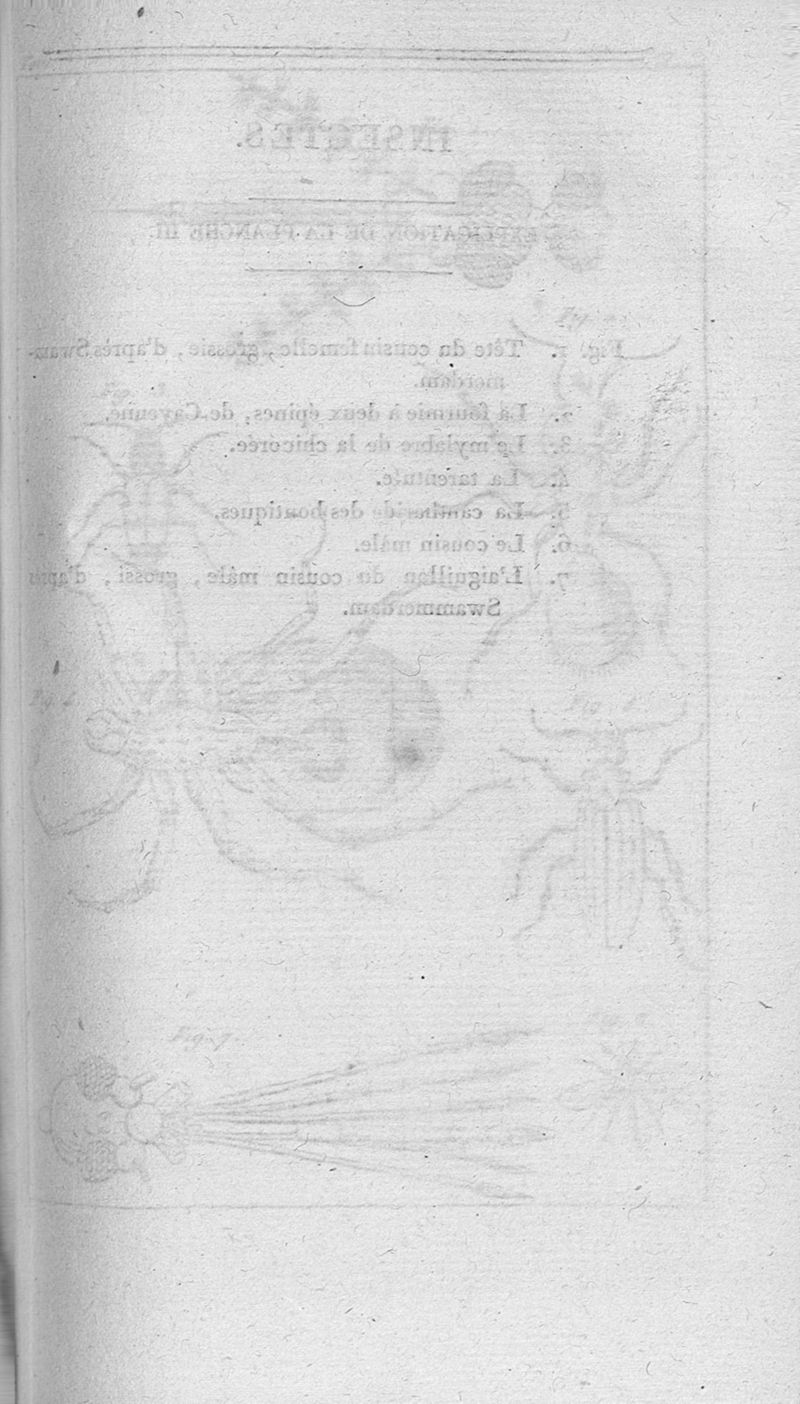 INSECTES.
EXPLICATION DE LA PLANCHE III.
Fig. 1. Tête du cousin femelle, grossie, d'après Swam-
merdam.
2. La fourmie à deux épines, de Cayenne.
3. Le mylabre de la chicorée.
4. La tarentule.
5. La cantharide des boutiques.
6. Le cousin mâle.
7. L'aiguillon du cousin mâle, grossi, d'après
Swammerdam.
Fig. 3.
Fig. 4.
Fig. 7.